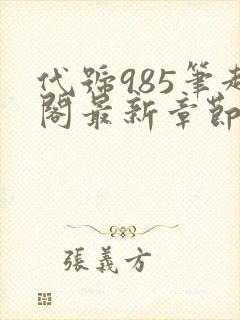 代號985筆趣
閣最新章節
張義方